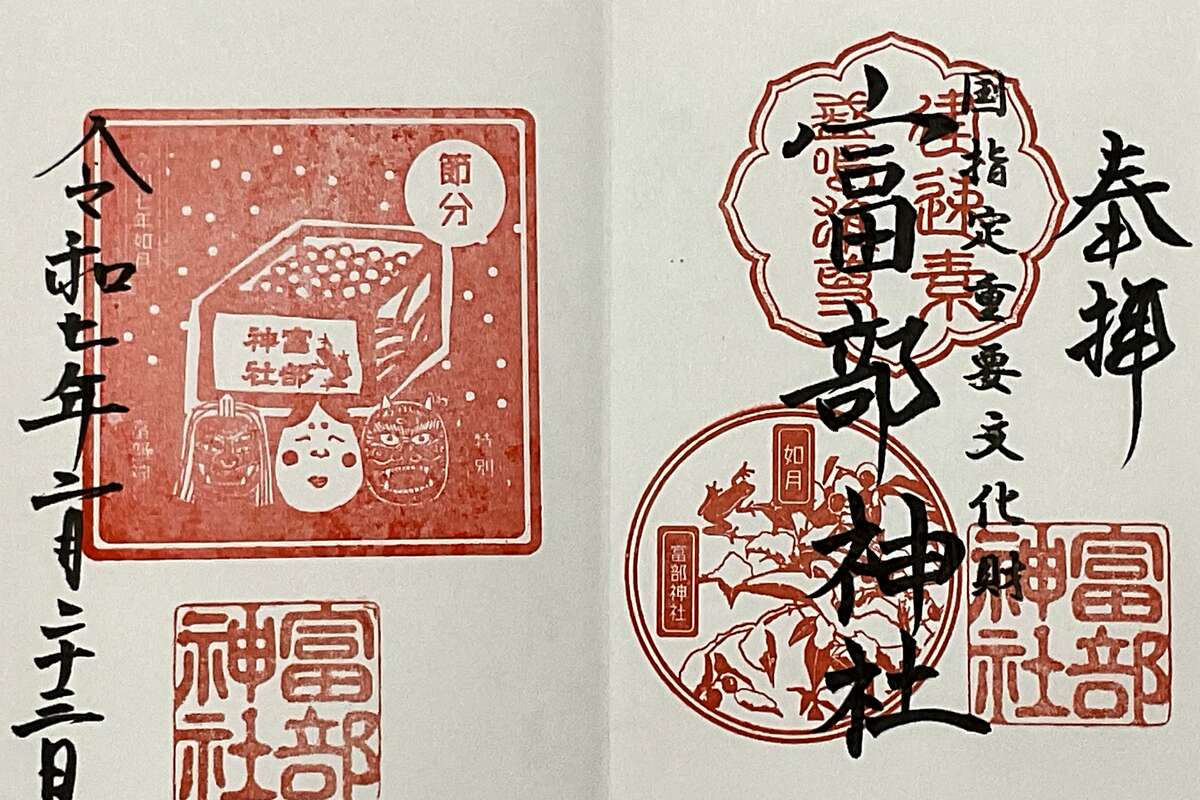 奉拝
国指定重要文化財
建速素
富部神社
如月
富部神社
富部
神社
節分
富部
神社
特別
令和七年如月
富部
神社
令和七年二月二十二日